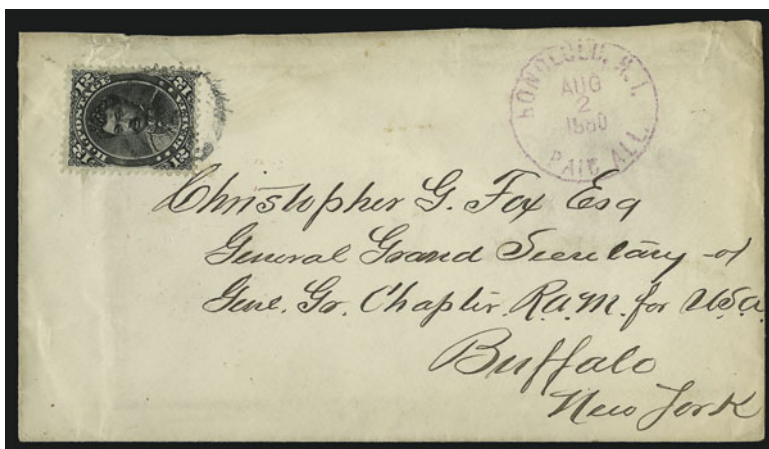 HONOLULU. H.I.
AUG
2
1880
PAID ALL.
12 12
12 12
Christopher G. Fox Esq
General Grand Secretary of
Genl. Gr. Chapter R.A.M. for U.S.A.
Buffalo
New York